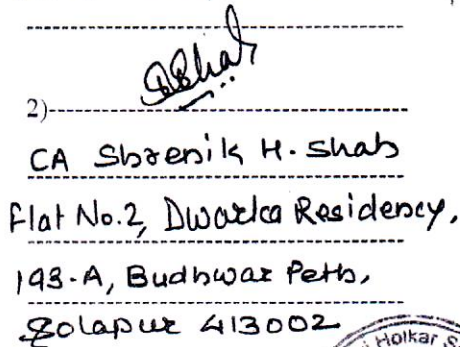 2)
CA Shrenik H. Shah
Flat No.2, Dwarka Residency,
193-A, Budhwar Peth,
Solapur 413002
Holkar S